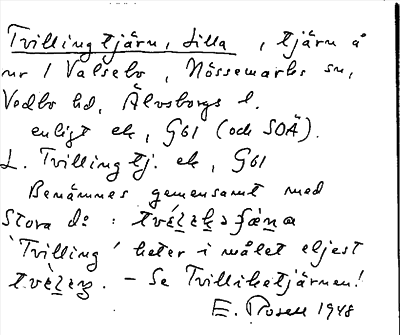 Tvillingtjärn, Lilla, tjärn å
nr 1 Valsebo, Nössemarks sn,
Vedbo hd, Älvsborgs l.
enligt ek, G61 (och SOÄ).
L. Tvillingtj. ek, G61
Benämnes gemensamt med
Stora do :
'Tvilling' heter i målet eljest
– Se Tvilliketjärnen!
E. Rosell 1948